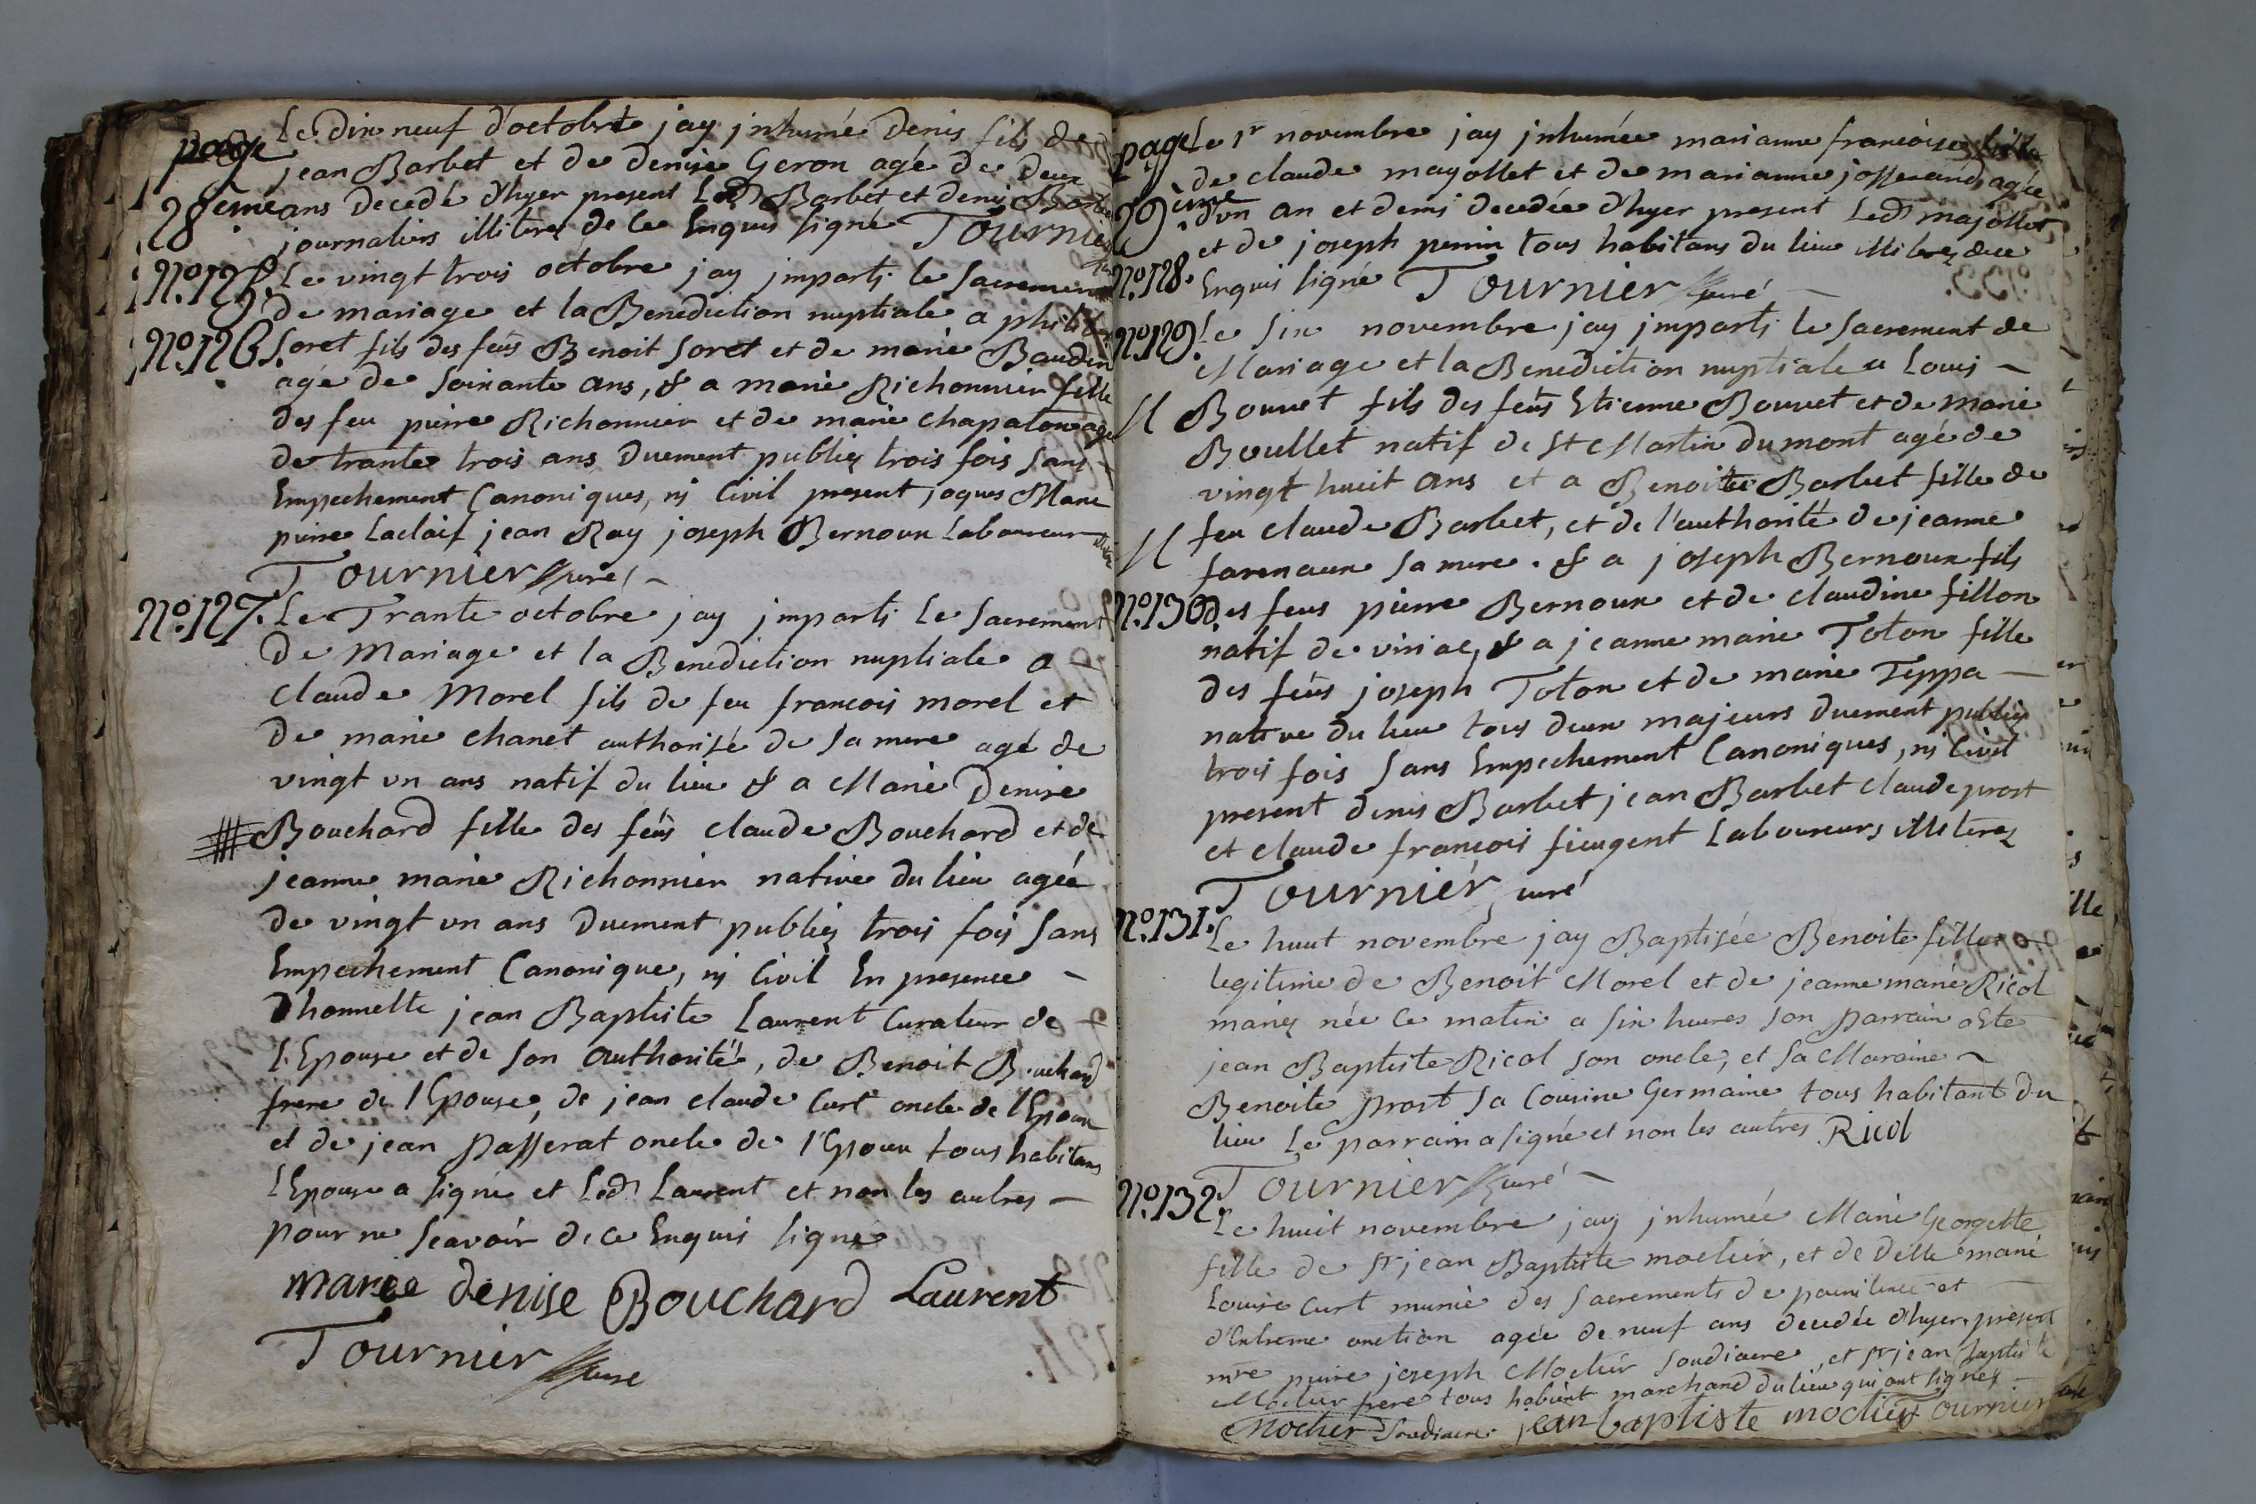 page 28eme
Le dix neuf d'octobre jay inhumé denis fils de
jean Barbet et de denise Geron agé de deux
ans decedé d'hyer present led Barbet et denis Barbet
journaliers illiteres de ce Enquis signé Tournier
No. 125.
No. 126.
Le vingt trois octobre jay imparti le Sacrement
de mariage et la Benediction nuptiale a
Soret fils des feus Benoit Soret et de marie Baudin
agé de soixante ans, & a marie Richonnier fille
des feu pierre Richonnier et de marie chapaton agé
de trante trois ans Duement publiez trois fois sans
Empechement Canoniques, ni Civil present jaques Mare
pierre Laclaif jean Ray joseph Bernoux Laboureur
Tournier curé
No. 127.
Le Trante octobre jay imparti le Sacrement
De Mariage et la Benediction nuptiale a
Claude Morel fils de feu francois morel et
de marie chanet authorisé de sa mere agé de
vingt un ans natif du lieu & a Marie Denise
Bouchard fille des feus claude Bouchard et de
jeanne marie Richonnier native du lieu agée
de vingt un ans Duement publiez trois fois sans
Empechement Canonique, ni Civil En presence
D'honnette jean Baptiste Laurent Curateur de
l'Epouse et de son authorité, de Benoit Bouchard
frere de l'Epouse, de jean claude Curt oncle de l'Epoux
et de jean Passerat oncle de l'Epoux tous habitans
l'Epouse a signé et led Laurent et non les autres
pour ne scavoir de ce Enquis signé
marie denise Bouchard Laurent
Tournier curé
page 29ème
Le 1r novembre jay inhumée marianne francoise fille
de claude mayollet et de marianne josserand agée
d'un an et demi decedée d'hyer present led majollet
et de joseph perrin tous habitans du lieu illiterez de ce
No. 128.
Enquis signé Tournier curé
No. 129.
Le six novembre jay imparti le Sacrement de
Mariage et la Benediction nuptiale a Louis
Bouvet fils des feus Etienne Bouvet et de marie
Boullet natif de St Martin dumont agé de
vingt huit ans et a Benoite Barbet fille de
feu claude Barbet, et de l'authorité de jeanne
farenaux sa mere. & a joseph Bernoux fils
No. 130.
des feus pierre Bernoux et de claudine fillon
natif de viriac, & a jeanne marie Toton fille
des feus joseph Toton et de marie Teppa
native du lieu tous deux majeurs duement publiez
trois fois sans Empechement Canoniques, ni Civil
present denis Barbet jean Barbet claude prost
et claude francois fieugent Laboureurs illiterez
Tournier curé
No. 131.
Le huit novembre jay Baptisée Benoite fille
legitime de Benoit Morel et de jeanne marie Ricol
mariez née ce matin a six heures son parrain a Ete
jean Baptiste Ricol son oncle, et sa Maraine
Benoite prost sa Cousine Germaine tous habitant du
lieu le parrain a signé et non les autres Ricol
Tournier curé
No. 132.
Le huit novembre jay inhumée Marie Georgette
fille de Sr jean Baptiste moctier, et de delle marie
Louise Curt munie des Sacrements de penitence et
d'Extreme onction agée de neuf ans decedée d'hyer present
mre pierre joseph Moctier soudiacre, et Sr jean Baptiste
Moctier frere tous habitant marchand du lieu qui ont signés
Moctier Soudiacre jean baptiste moctier Tournier